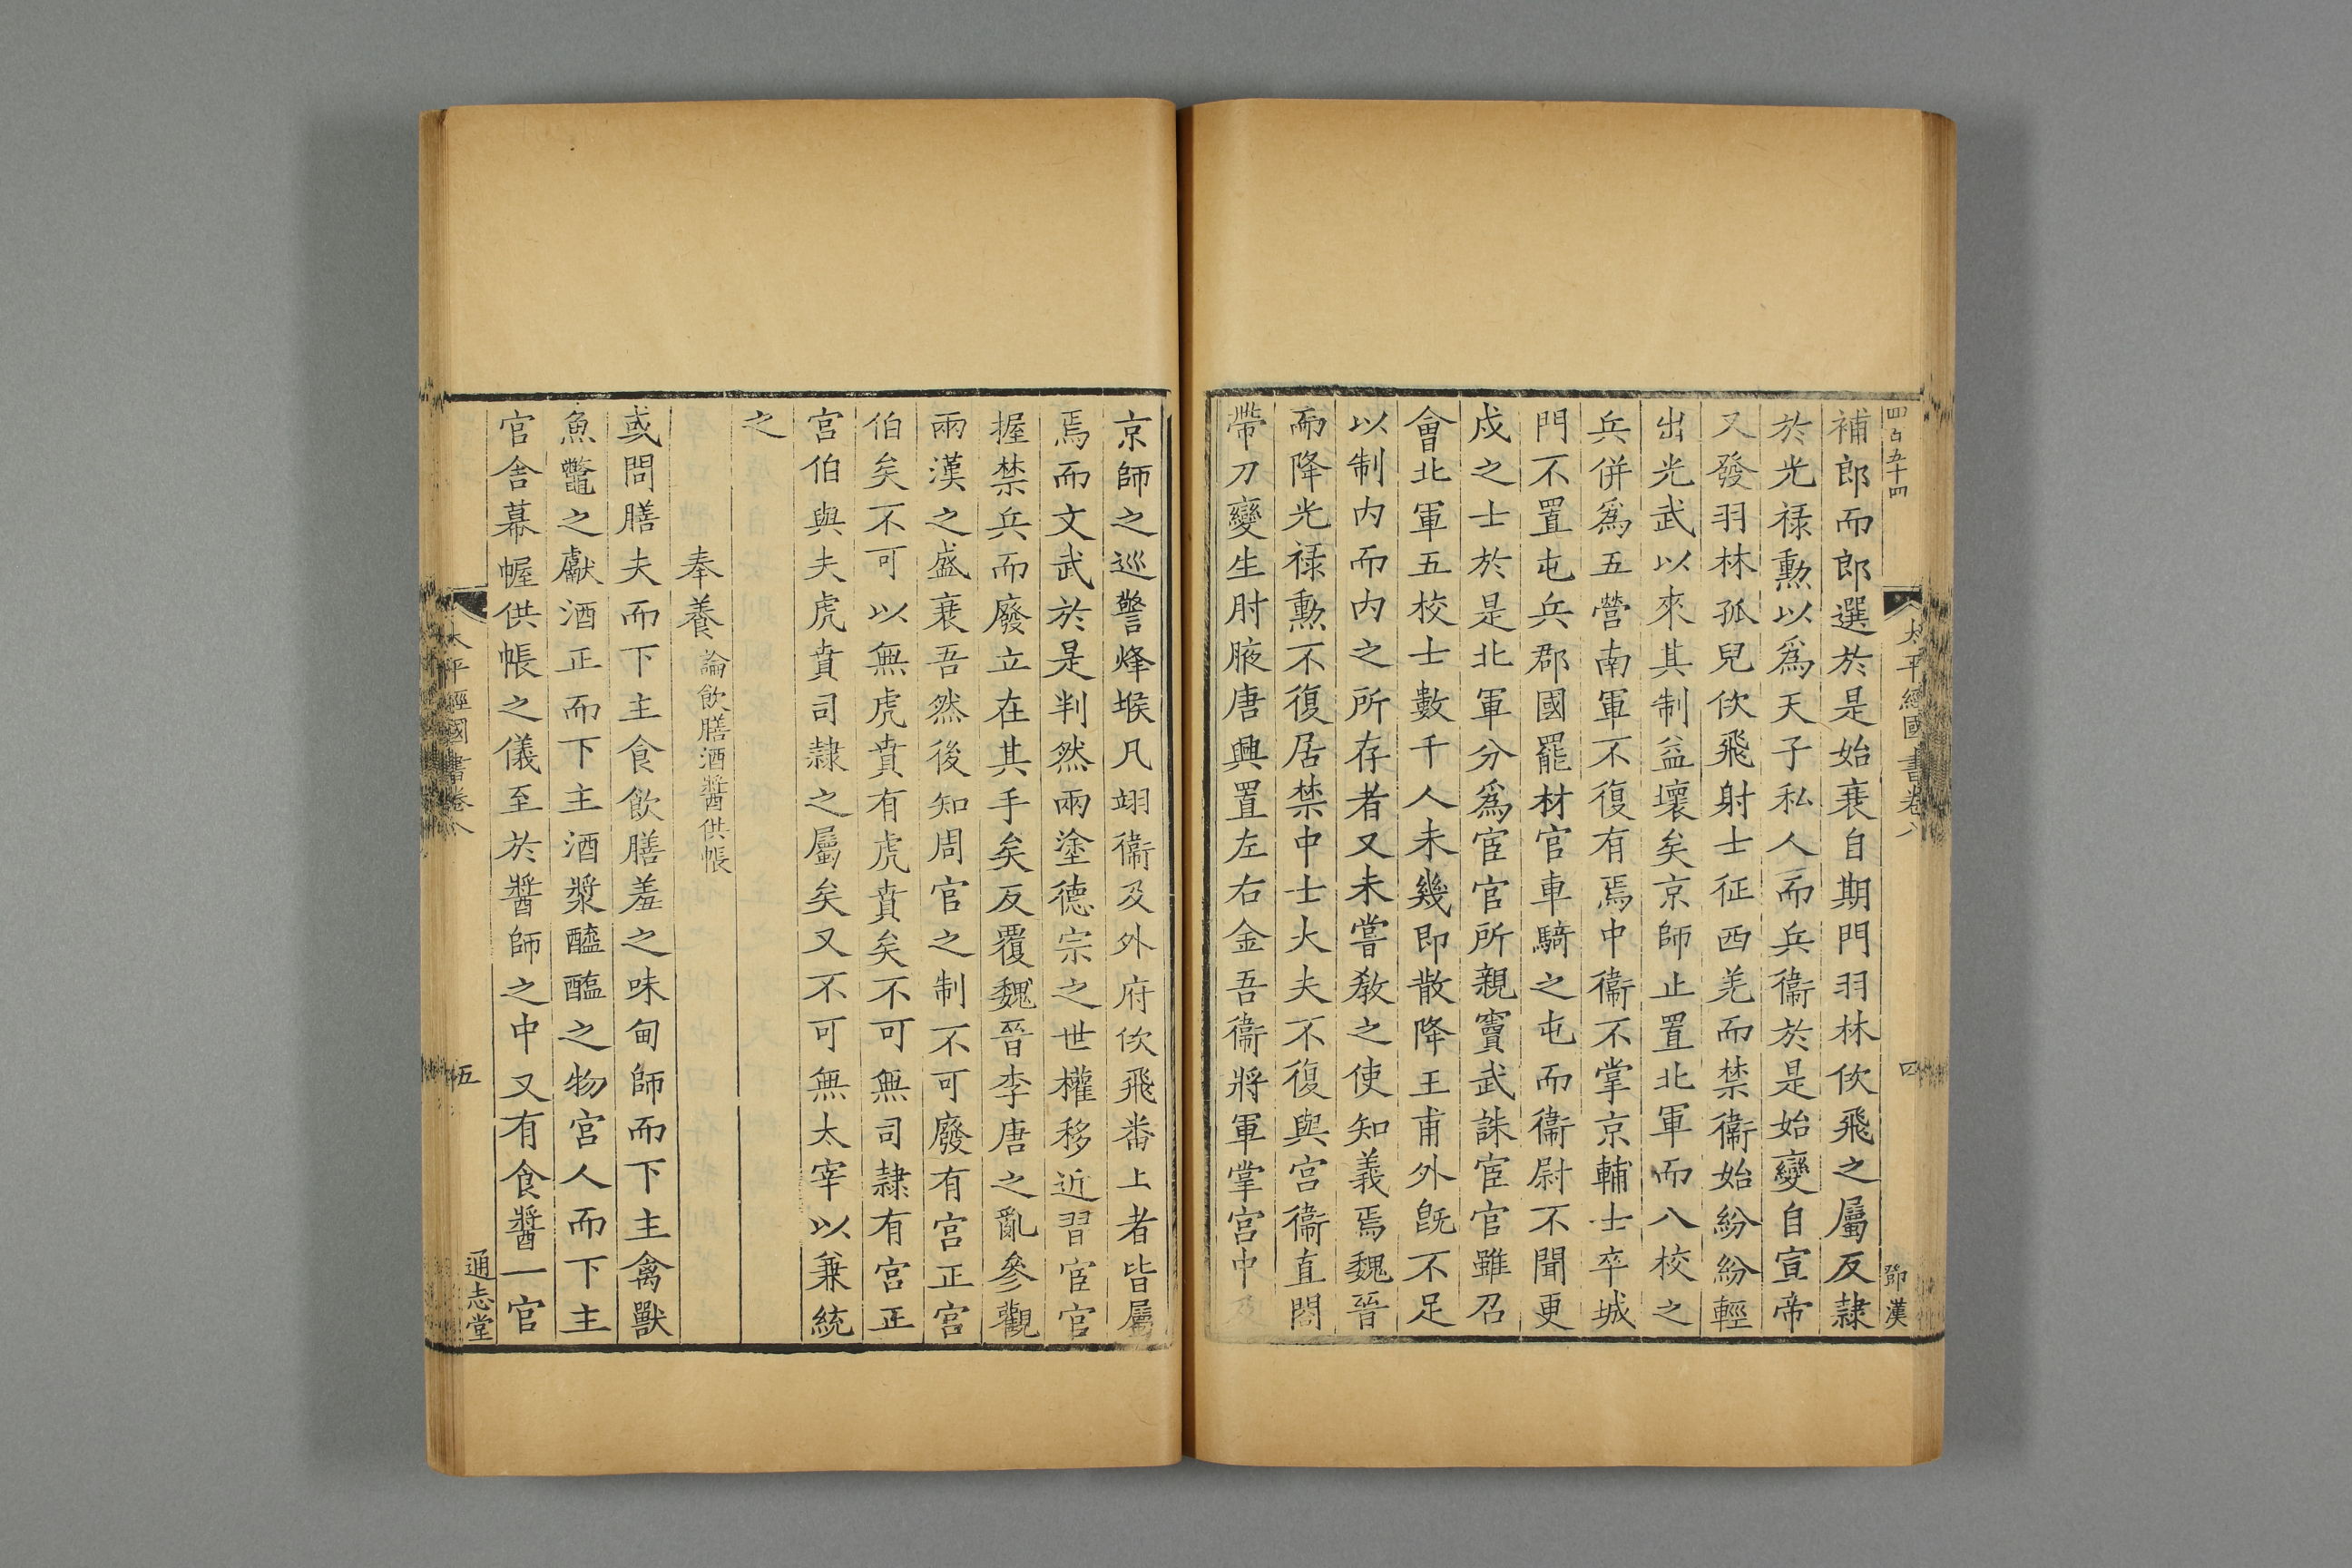 四百五十四
太平經國書卷八
四
鄧漢
補郎而郎選於是始衰自期門羽林佽飛之屬反隷
於光禄勲以爲天子私人而兵衞於是始變自宣帝
又發羽林孤兒佽飛射士征西羌而禁衞始紛紛輕
出光武以來其制益壞矣京師止置北軍而八校之
兵併爲五營南軍不復有焉中衞不掌京輔士卒城
門不置屯兵郡國罷材官車騎之屯而衞尉不聞更
戍之士於是北軍分爲宦官所親竇武誅宦官雖召
會北軍五校士數千人未幾即散降王甫外旣不足
以制内而内之所存者又未嘗教之使知義焉魏晉
而降光禄勲不復居禁中士大夫不復與宫衞直閤
帶刀變生肘腋唐興置左右金吾衞將軍掌宫中及
京師之巡警烽堠凡翊衞及外府佽飛番上者皆屬
焉而文武於是判然兩塗德宗之世權移近習宦官
握禁兵而廢立在其手矣反覆魏晉李唐之亂參觀
兩漢之盛衰吾然後知周官之制不可廢有宫正宫
伯矣不可以無虎賁有虎賁矣不可無司隷有宫正
宫伯與夫虎賁司隷之屬矣又不可無太宰以兼統
之
奉養論飲膳酒醬供帳
或問膳夫而下主食飲膳羞之味甸師而下主禽獸
魚鼈之獻酒正而下主酒漿醯醢之物宫人而下主
官舍幕幄供帳之儀至於醬師之中又有食醬一官
太平經國書卷八
五
通志堂